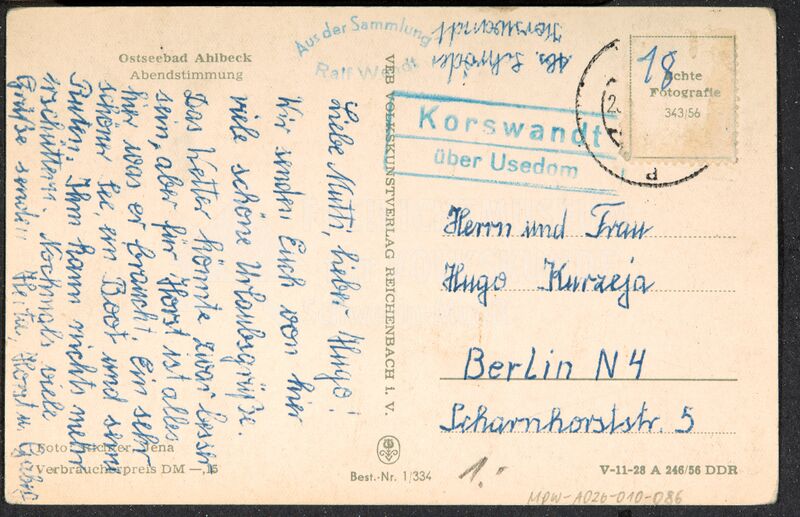 Ostseebad Ahlbeck
Abendstimmung
Aus der Sammlung
Ralf Wendt
Abs. Schröder
Korswandt
Liebe Mutti, lieber Hugo!
Wir senden Euch von hier
viele schöne Urlaubsgrüße.
Das Wetter könnte zwar besser
sein, aber für Horst ist alles
hier was er braucht. Ein sehr
schöner See, ein Boot und seine
Ruten. Ihm kann nichts mehr
erschüttern. Nochmals viele
Grüße senden Herta, Horst u. Gabi
VEB VOLKSKUNSTVERLAG REICHENBACH i. V.
Korswandt
über Usedom
18
Echte
Fotografie
343/56
Herrn und Frau
Hugo Kurzeja
Berlin N4
Scharnhorststr. 5
Foto: Richter, Jena
Verbraucherpreis DM —,15
Best.-Nr. 1/334
1.-
V-11-28 A 246/56 DDR
MPW-A026-010-086